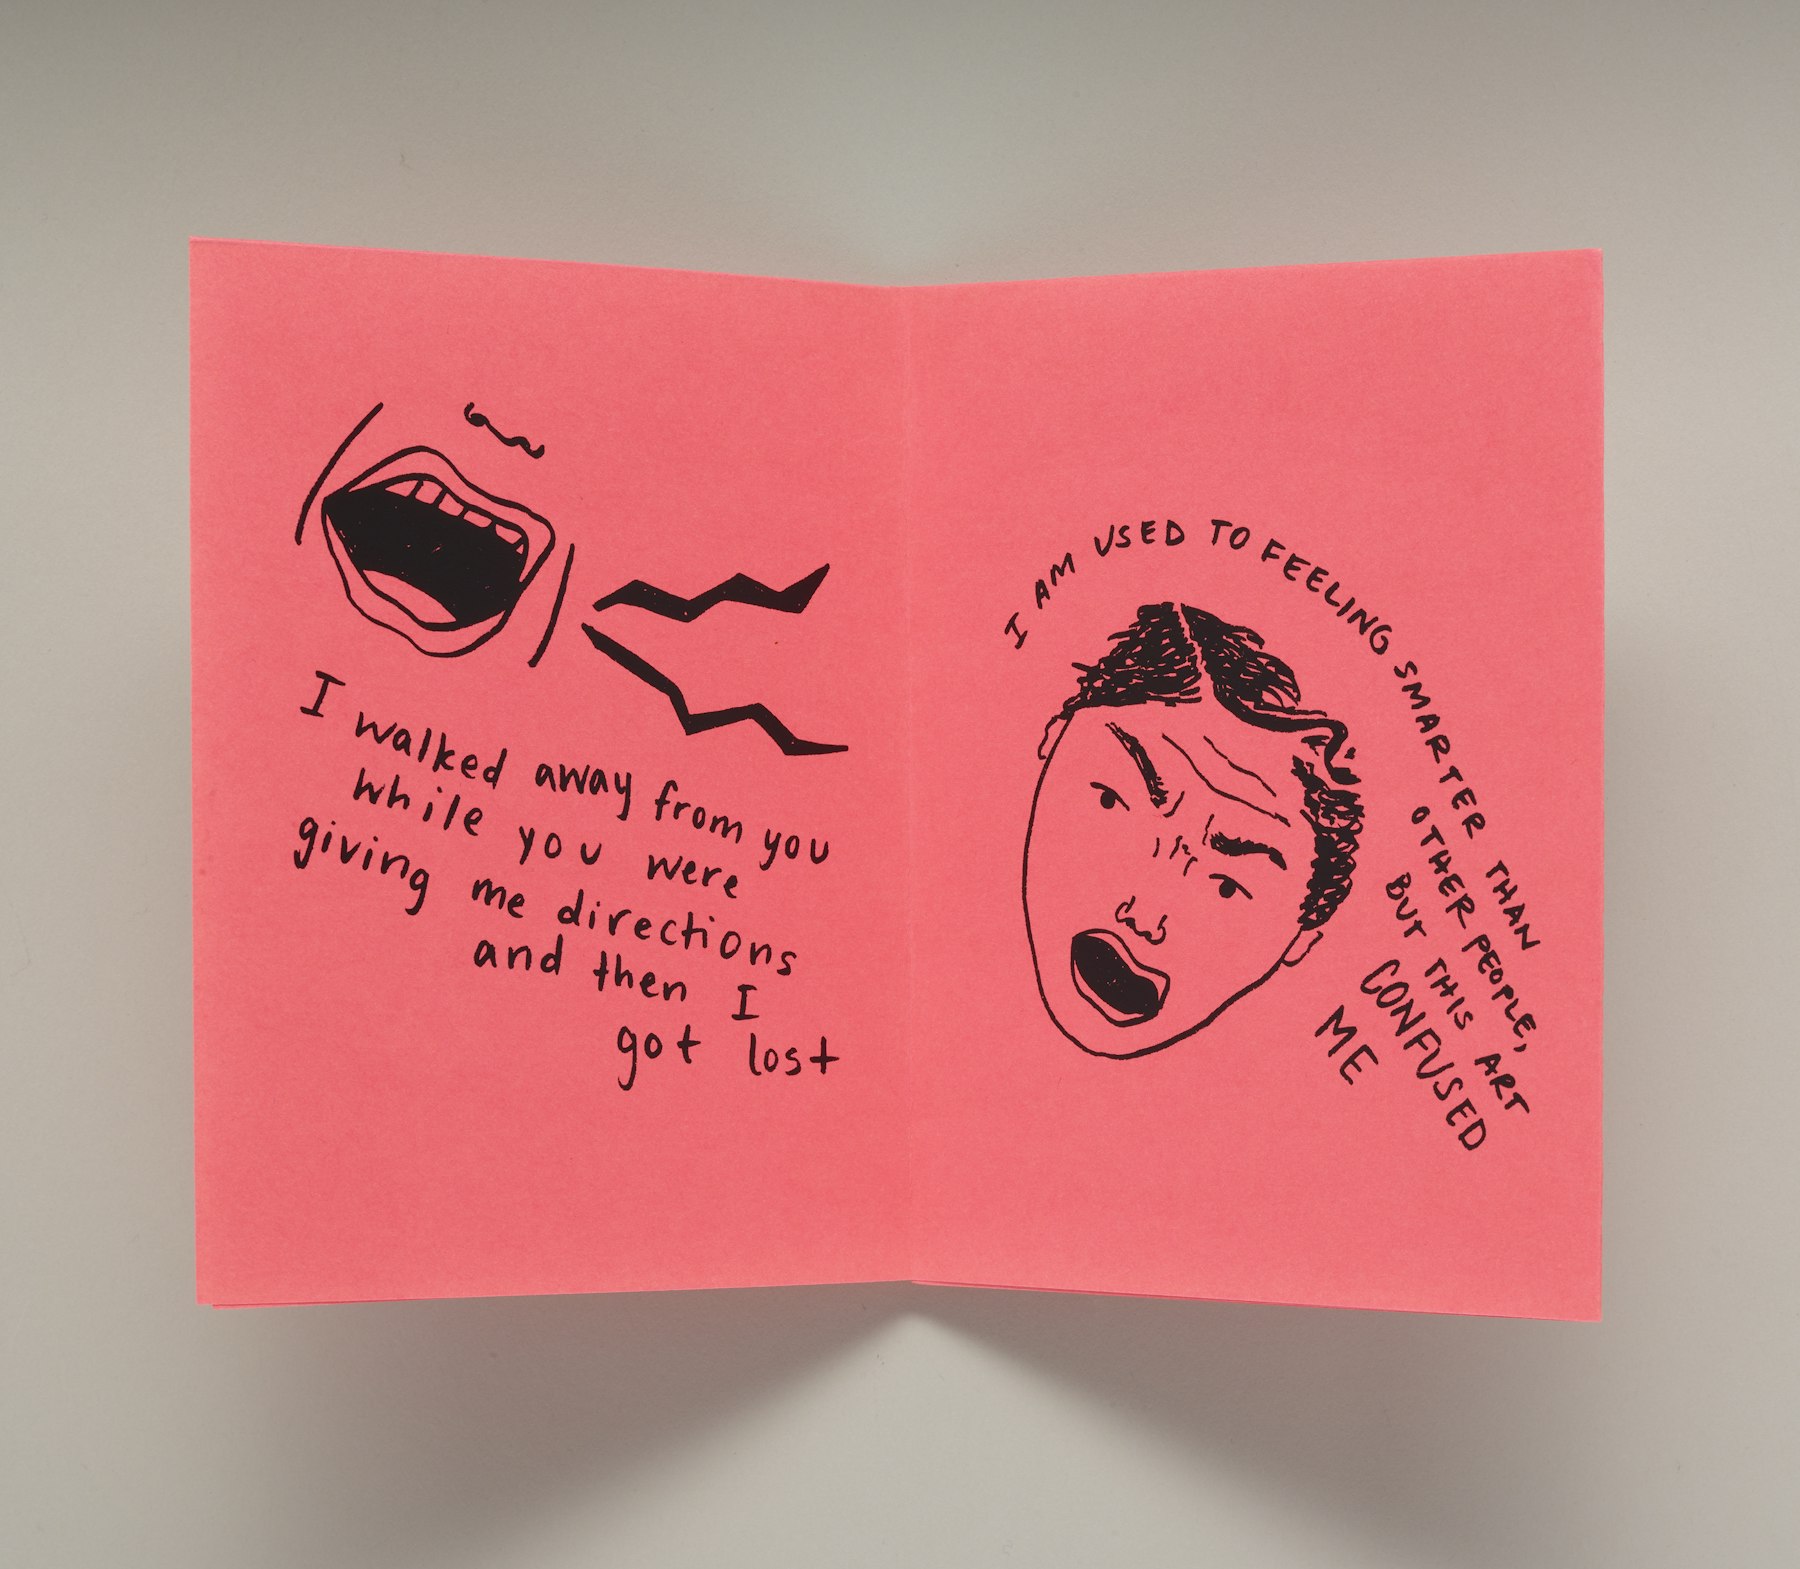 I walked away from you
while you were
giving me directions
and then I
got lost
I AM USED TO FEELING SMARTER THAN
OTHER PEOPLE,
BUT THIS ART
CONFUSED
ME